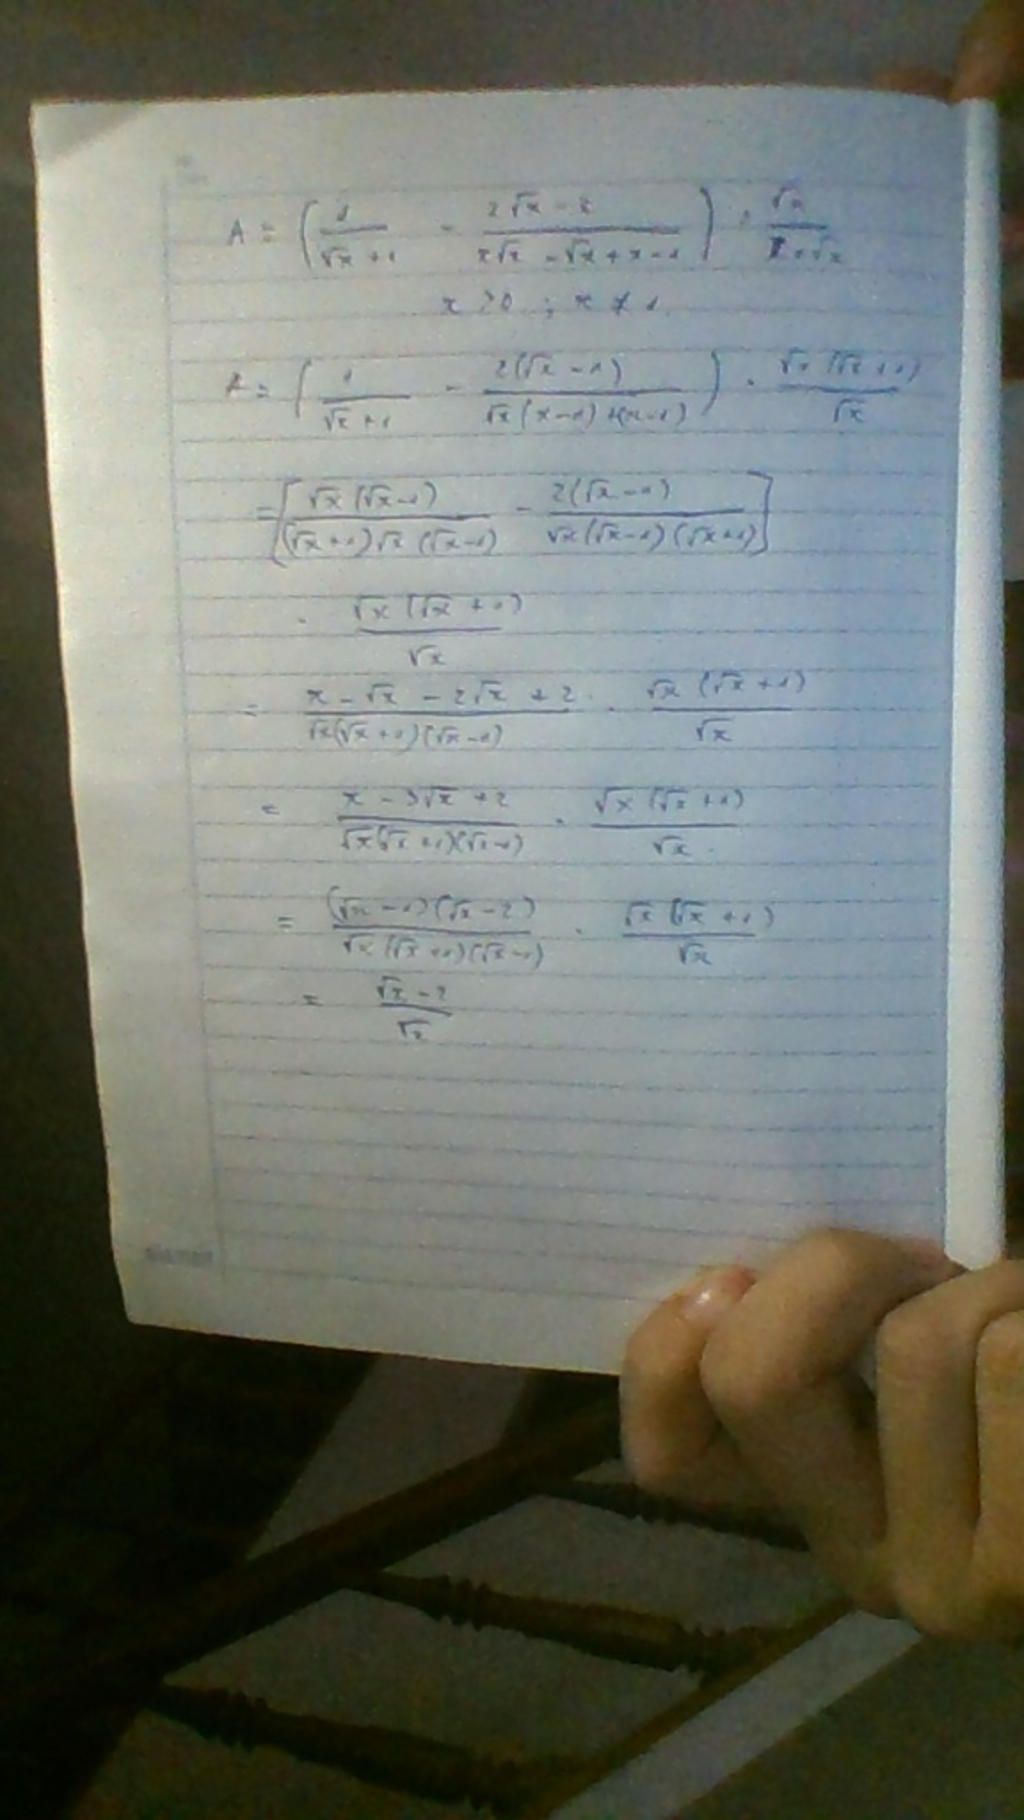 A = ( 1/(√x + 1) - (2√x - 2)/(x√x - √x + x - 1) ) : √x/(x + √x)
x > 0 ; x ≠ 1
A = ( 1/(√x + 1) - 2(√x - 1)/(√x(x - 1) + (x - 1)) ) . √x(√x + 1)/√x
= [ √x(√x - 1)/((√x + 1)√x(√x - 1)) - 2(√x - 1)/(√x(√x - 1)(√x + 1)) ]
. √x(√x + 1)/√x
= (x - √x - 2√x + 2)/(√x(√x + 1)(√x - 1)) . √x(√x + 1)/√x
= (x - 3√x + 2)/(√x(√x + 1)(√x - 1)) . √x(√x + 1)/√x
= (√x - 1)(√x - 2)/(√x(√x + 1)(√x - 1)) . √x(√x + 1)/√x
= (√x - 2)/√x